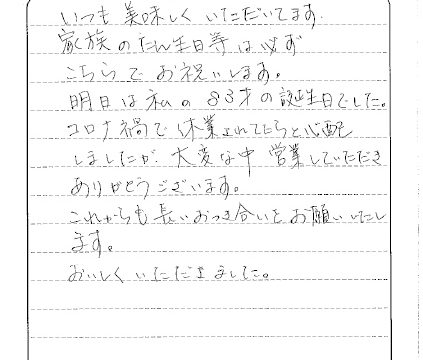 いつも美味しくいただいてます.
家族のたん生日等は必ず
こちらでお祝いします。
明日は私の83才の誕生日でした。
コロナ禍で休業されてたらと心配
しましたが大変な中営業していただき
ありがとうございます。
これからも長いおつき合いをお願いいたし
ます。
おいしくいただきました。